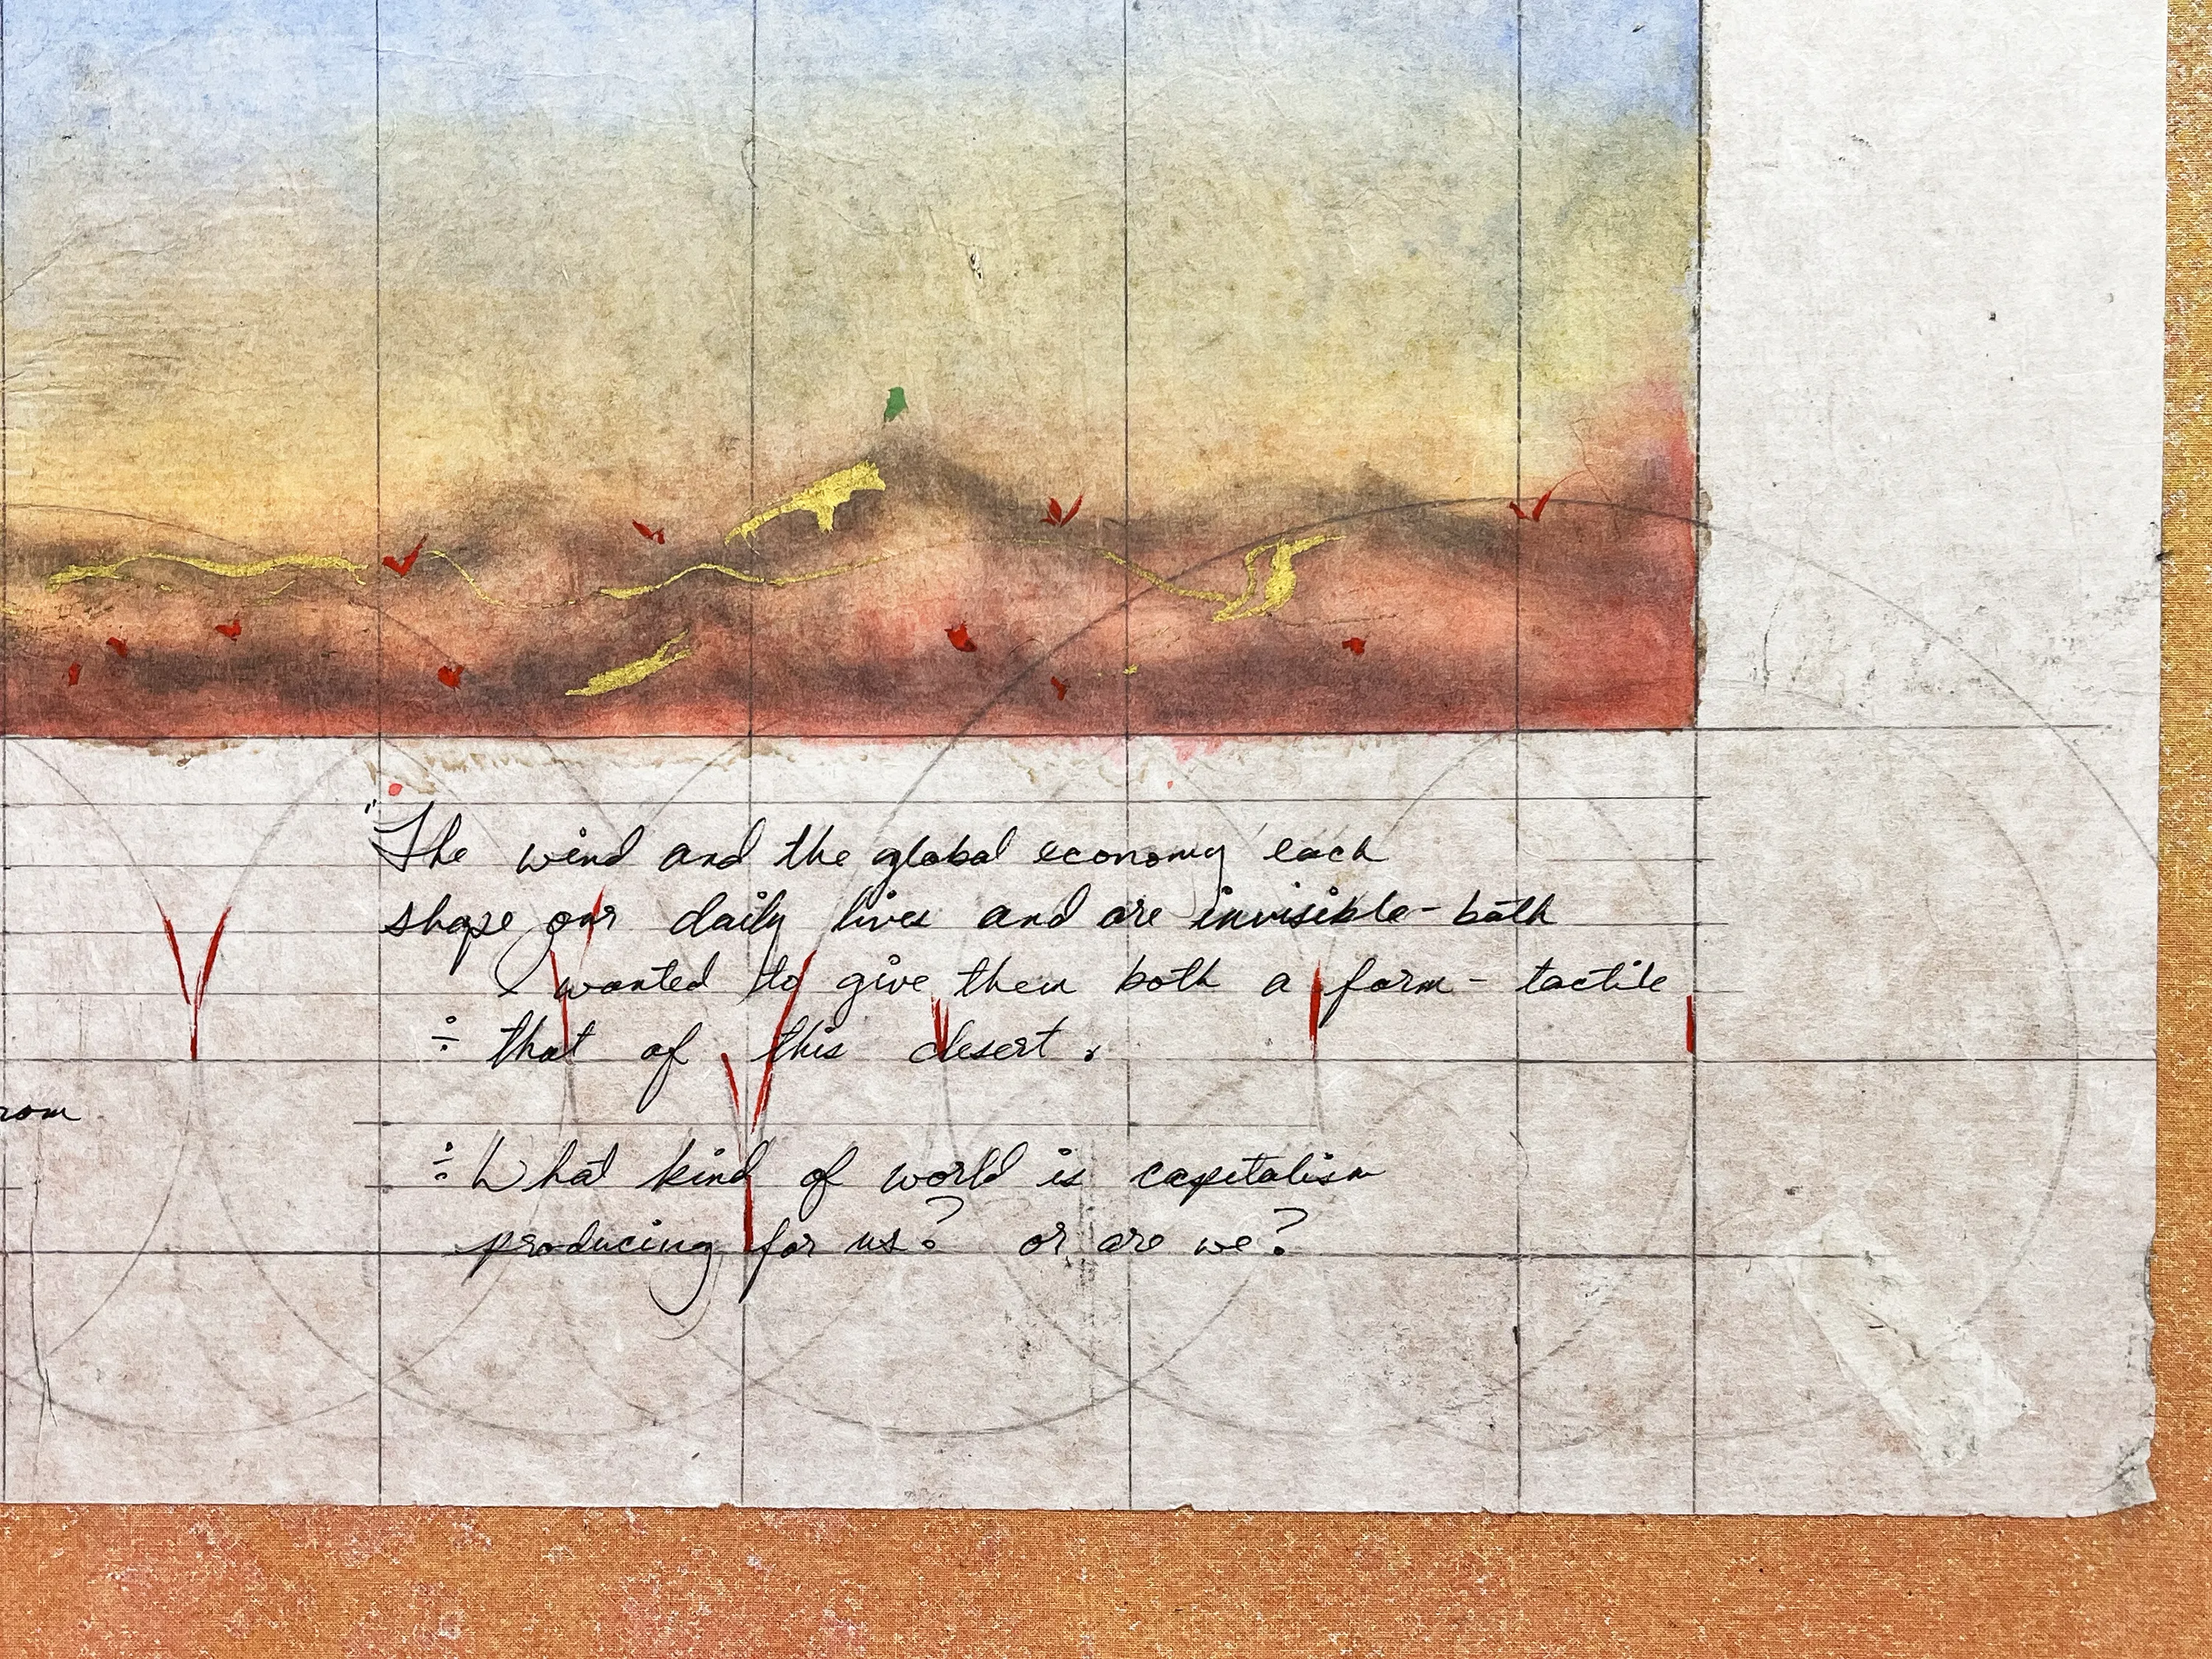 "The wind and the global economy each
shape our daily lives and are invisible - both
I wanted to give them both a form - tactile
÷ that of this desert.
rom
÷ What kind of world is capitalism
producing for us? or are we?